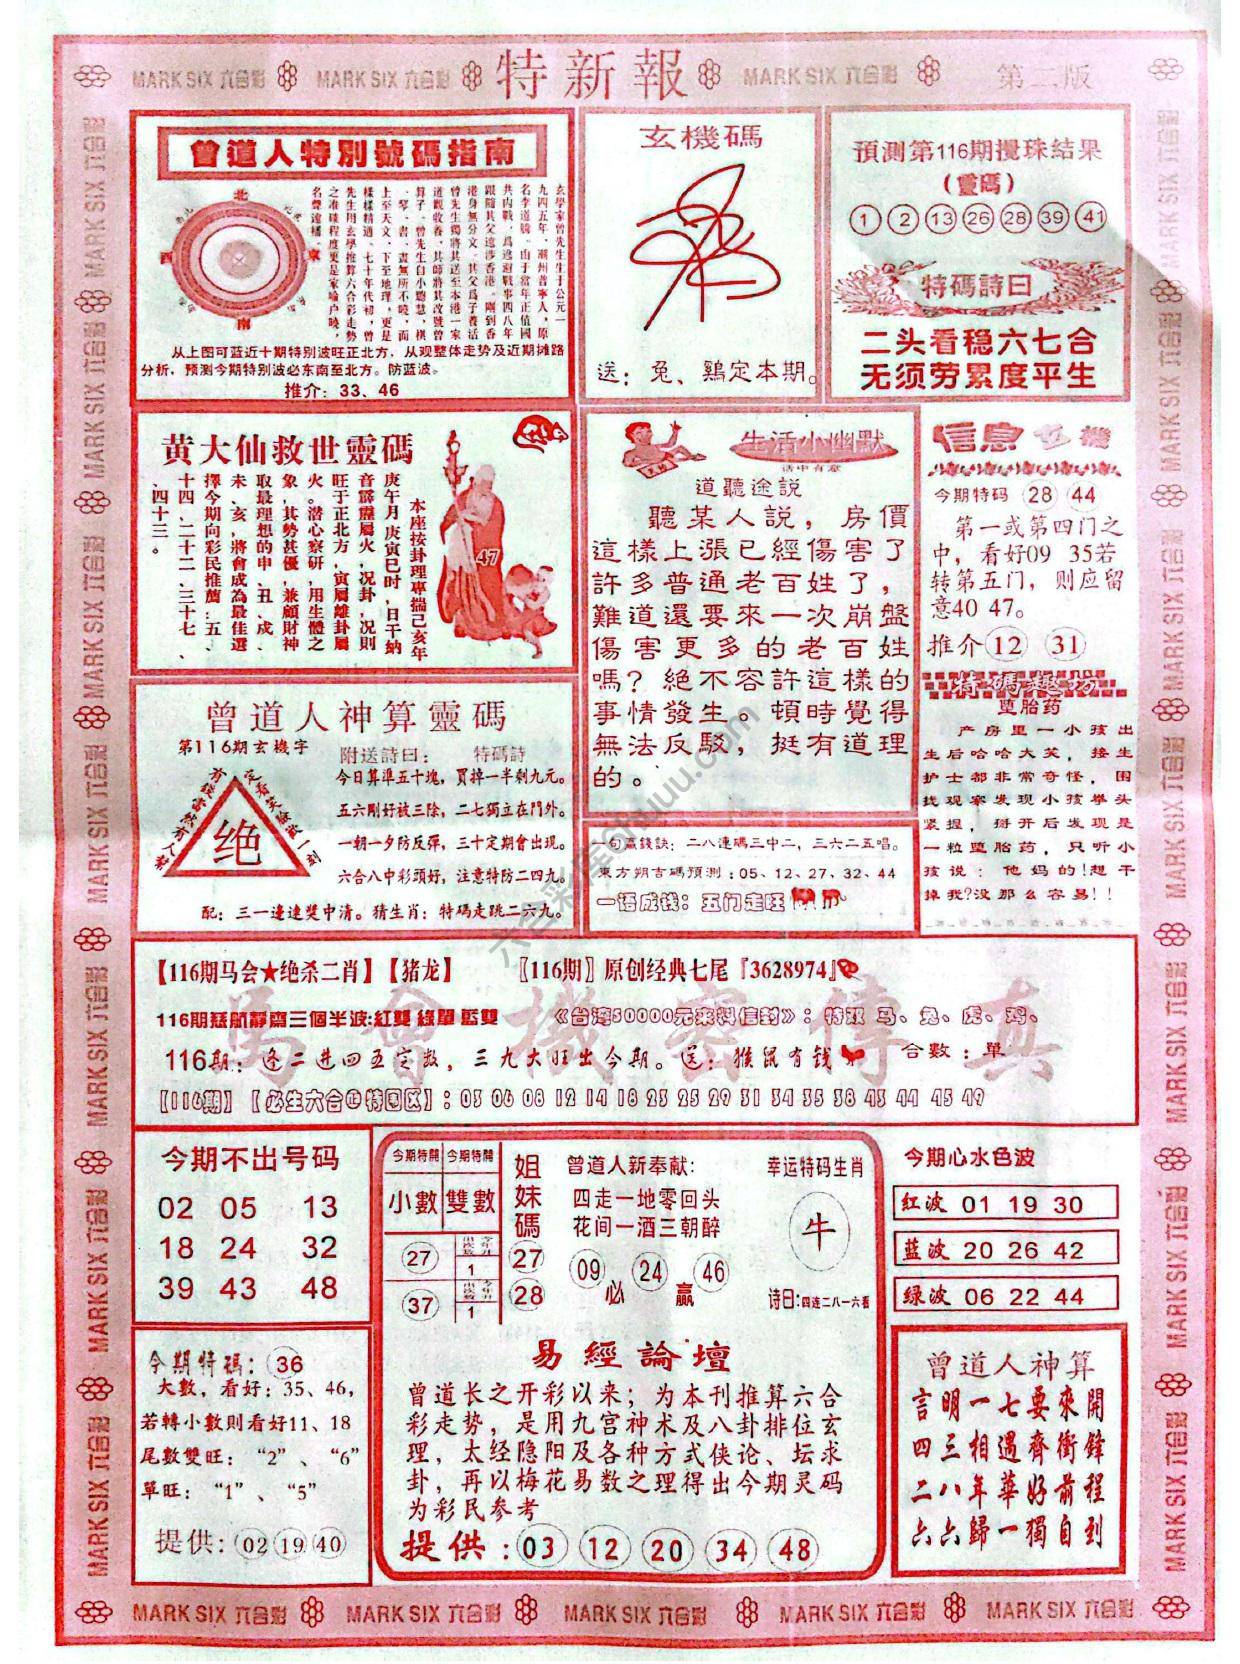 MARK SIX 六合彩
MARK SIX 六合彩
特新報
MARK SIX 六合彩
第二版
曾道人特別號碼指南
北
西
東
南
玄學家曾先生生于公元一
九四五年，潮州普寧人，原
名李道號，由于當年正值國
共内戰，爲逃避戰事四八年
跟隨其父遠涉香港。剛到香
港身無分文，其父爲了養活
曾先生獨將其送至本港一家
道觀收養，其師將其改號曾
算子。曾先生自小聰慧，棋
、琴、書、畫無所不曉，而
上至天文、下至地理，更是
樣樣精通。七十年代初，曾
先生用玄學推算六合彩走勢
之准確程度更是家喻户曉，
名聲遠播。
从上图可蓝近十期特别波旺正北方，从观整体走势及近期摊路
分析，预测今期特别波必东南至北方。防蓝波。
推介：33、46
玄機碼
送：兔、鷄定本期。
預測第116期攪珠結果
（靈碼）
1 2 13 26 28 39 41
特碼詩曰
二头看稳六七合
无须劳累度平生
黄大仙救世靈碼
本座按卦理專揣己亥年
庚午月庚寅巳时，日干納
音霹靂屬火，况卦，况則
旺于正北方，寅屬離卦屬
火。潜心察研，用生體之
象，其勢甚優，兼顧財神
取最理想的申、丑、戍、
未、亥，將會成為最佳選
擇今期向彩民推薦：五、
十四、二十二、三十七
、四十三。
47
生活小幽默
话中有意
道聽途説
聽某人説，房價
這樣上漲已經傷害了
許多普通老百姓了，
難道還要來一次崩盤
傷害更多的老百姓
嗎？絕不容許這樣的
事情發生。頓時覺得
無法反駁，挺有道理
的。
信息玄機
今期特码 28 44
第一或第四门之
中，看好09 35若
转第五门，则应留
意40 47。
推介 12 31
特碼趣坊
堕胎药
产房里一小孩出
生后哈哈大笑，接生
护士都非常奇怪，围
找观察发现小孩拳头
紧握，掰开后发现是
一粒堕胎药，只听小
孩说：他妈的！想干
掉我？没那么容易！！
曾道人神算靈碼
第116期玄機字
附送詩曰：
特碼詩
绝
今日算準五十塊，買掉一半剩九元。
五六剛好被三除，二七獨立在門外。
一朝一夕防反彈，三十定期會出現。
六合八中彩頭好，注意特防二四九。
配：三一連連獎中清。猜生肖：特碼走跳二六九。
一句赢錢訣：二八連碼三中二，三六二五唱。
東方朔吉碼預測：05、12、27、32、44
一语成钱：五门走旺
【116期马会★绝杀二肖】【猪龙】
〖116期〗原创经典七尾『3628974』
馬會機密傳真
116期慈航靜齋三個半波：紅雙 綠單 藍雙
《台湾50000元来料信封》：特双 马、兔、虎、鸡、
116期：逢二进四五定数，三九大旺出今期。送：猴鼠有钱
合數：單
【116期】【必生六合@特围区】：03 06 08 12 14 18 23 25 29 31 34 35 38 43 44 45 49
今期不出号码
02 05 13
18 24 32
39 43 48
今期特開 今期特開
小數 雙數
27 出次数 今年开 1
37 出次数 今年开 1
姐妹碼
27
28
曾道人新奉献：
四走一地零回头
花间一酒三朝醉
09 24 46
必 赢
幸运特码生肖
牛
诗曰：四连二八一六看
今期心水色波
红波 01 19 30
蓝波 20 26 42
绿波 06 22 44
今期特碼：36
大數，看好：35、46，
若轉小數則看好11、18
尾數雙旺：“2”、“6”
單旺：“1”、“5”
提供：02 19 40
易經論壇
曾道长之开彩以来；为本刊推算六合
彩走势，是用九宫神术及八卦排位玄
理，太经隐阳及各种方式侠论、坛求
卦，再以梅花易数之理得出今期灵码
为彩民参考
提供：03 12 20 34 48
曾道人神算
言明一七要來開
四三相遇齊衝鋒
二八年華好前程
六六歸一獨自到
MARK SIX 六合彩
MARK SIX 六合彩
MARK SIX 六合彩
MARK SIX 六合彩
MARK SIX 六合彩